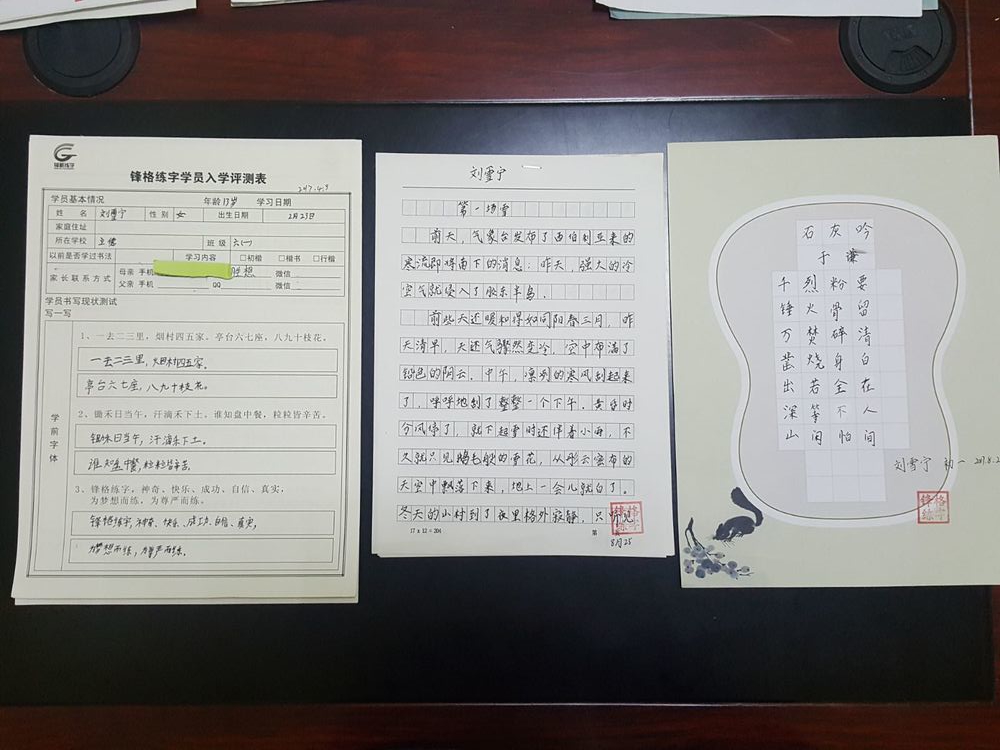 锋格练字
锋格练字学员入学评测表
2017.4.9
学员基本情况 年龄 13岁 学习日期
姓 名 刘雪宁 性 别 女 出生日期 2月23日
家庭住址
所在学校 班 级 六(一)
以前是否学过书法 学习内容 □初楷 □楷书 □行楷
家长联系方式 母亲 手机 微信
父亲 手机 QQ 微信
学员书写现状测试
写一写
学前字体
1、一去二三里，烟村四五家。亭台六七座，八九十枝花。
一去二三里，烟村四五家。
亭台六七座，八九十枝花。
2、锄禾日当午，汗滴禾下土。谁知盘中餐，粒粒皆辛苦。
锄禾日当午，汗滴禾下土。
谁知盘中餐，粒粒皆辛苦。
3、锋格练字，神奇、快乐、成功、自信、真实，
为梦想而练，为尊严而练。
锋格练字，神奇、快乐、成功、自信、真实，
为梦想而练，为尊严而练。
刘雪宁
第一场雪
前天，气象台发布了西伯利亚来的
寒流即将南下的消息；昨天，强大的冷
空气就侵入了胶东半岛。
前些天还暖和得如同阳春三月，昨
天清早，天还气骤然变冷，空中布满了
铅色的阴云。中午，凛冽的寒风刮起来
了，呼呼地刮了整整一个下午。黄昏时
分风停了，就下起雪时还伴着小雨，不
久就只见鹅毛般的雪花，从彤云密布的
天空中飘落下来，地上一会儿就白了。
冬天的山村到了夜里格外寂静，只听见
17 x 12 = 204 第
8月25
锋格练字
石灰吟
于谦
千锤万凿出深山
烈火焚烧若等闲
粉骨碎身全不怕
要留清白在人间
刘雪宁 初一 2017.8.2
锋格练字